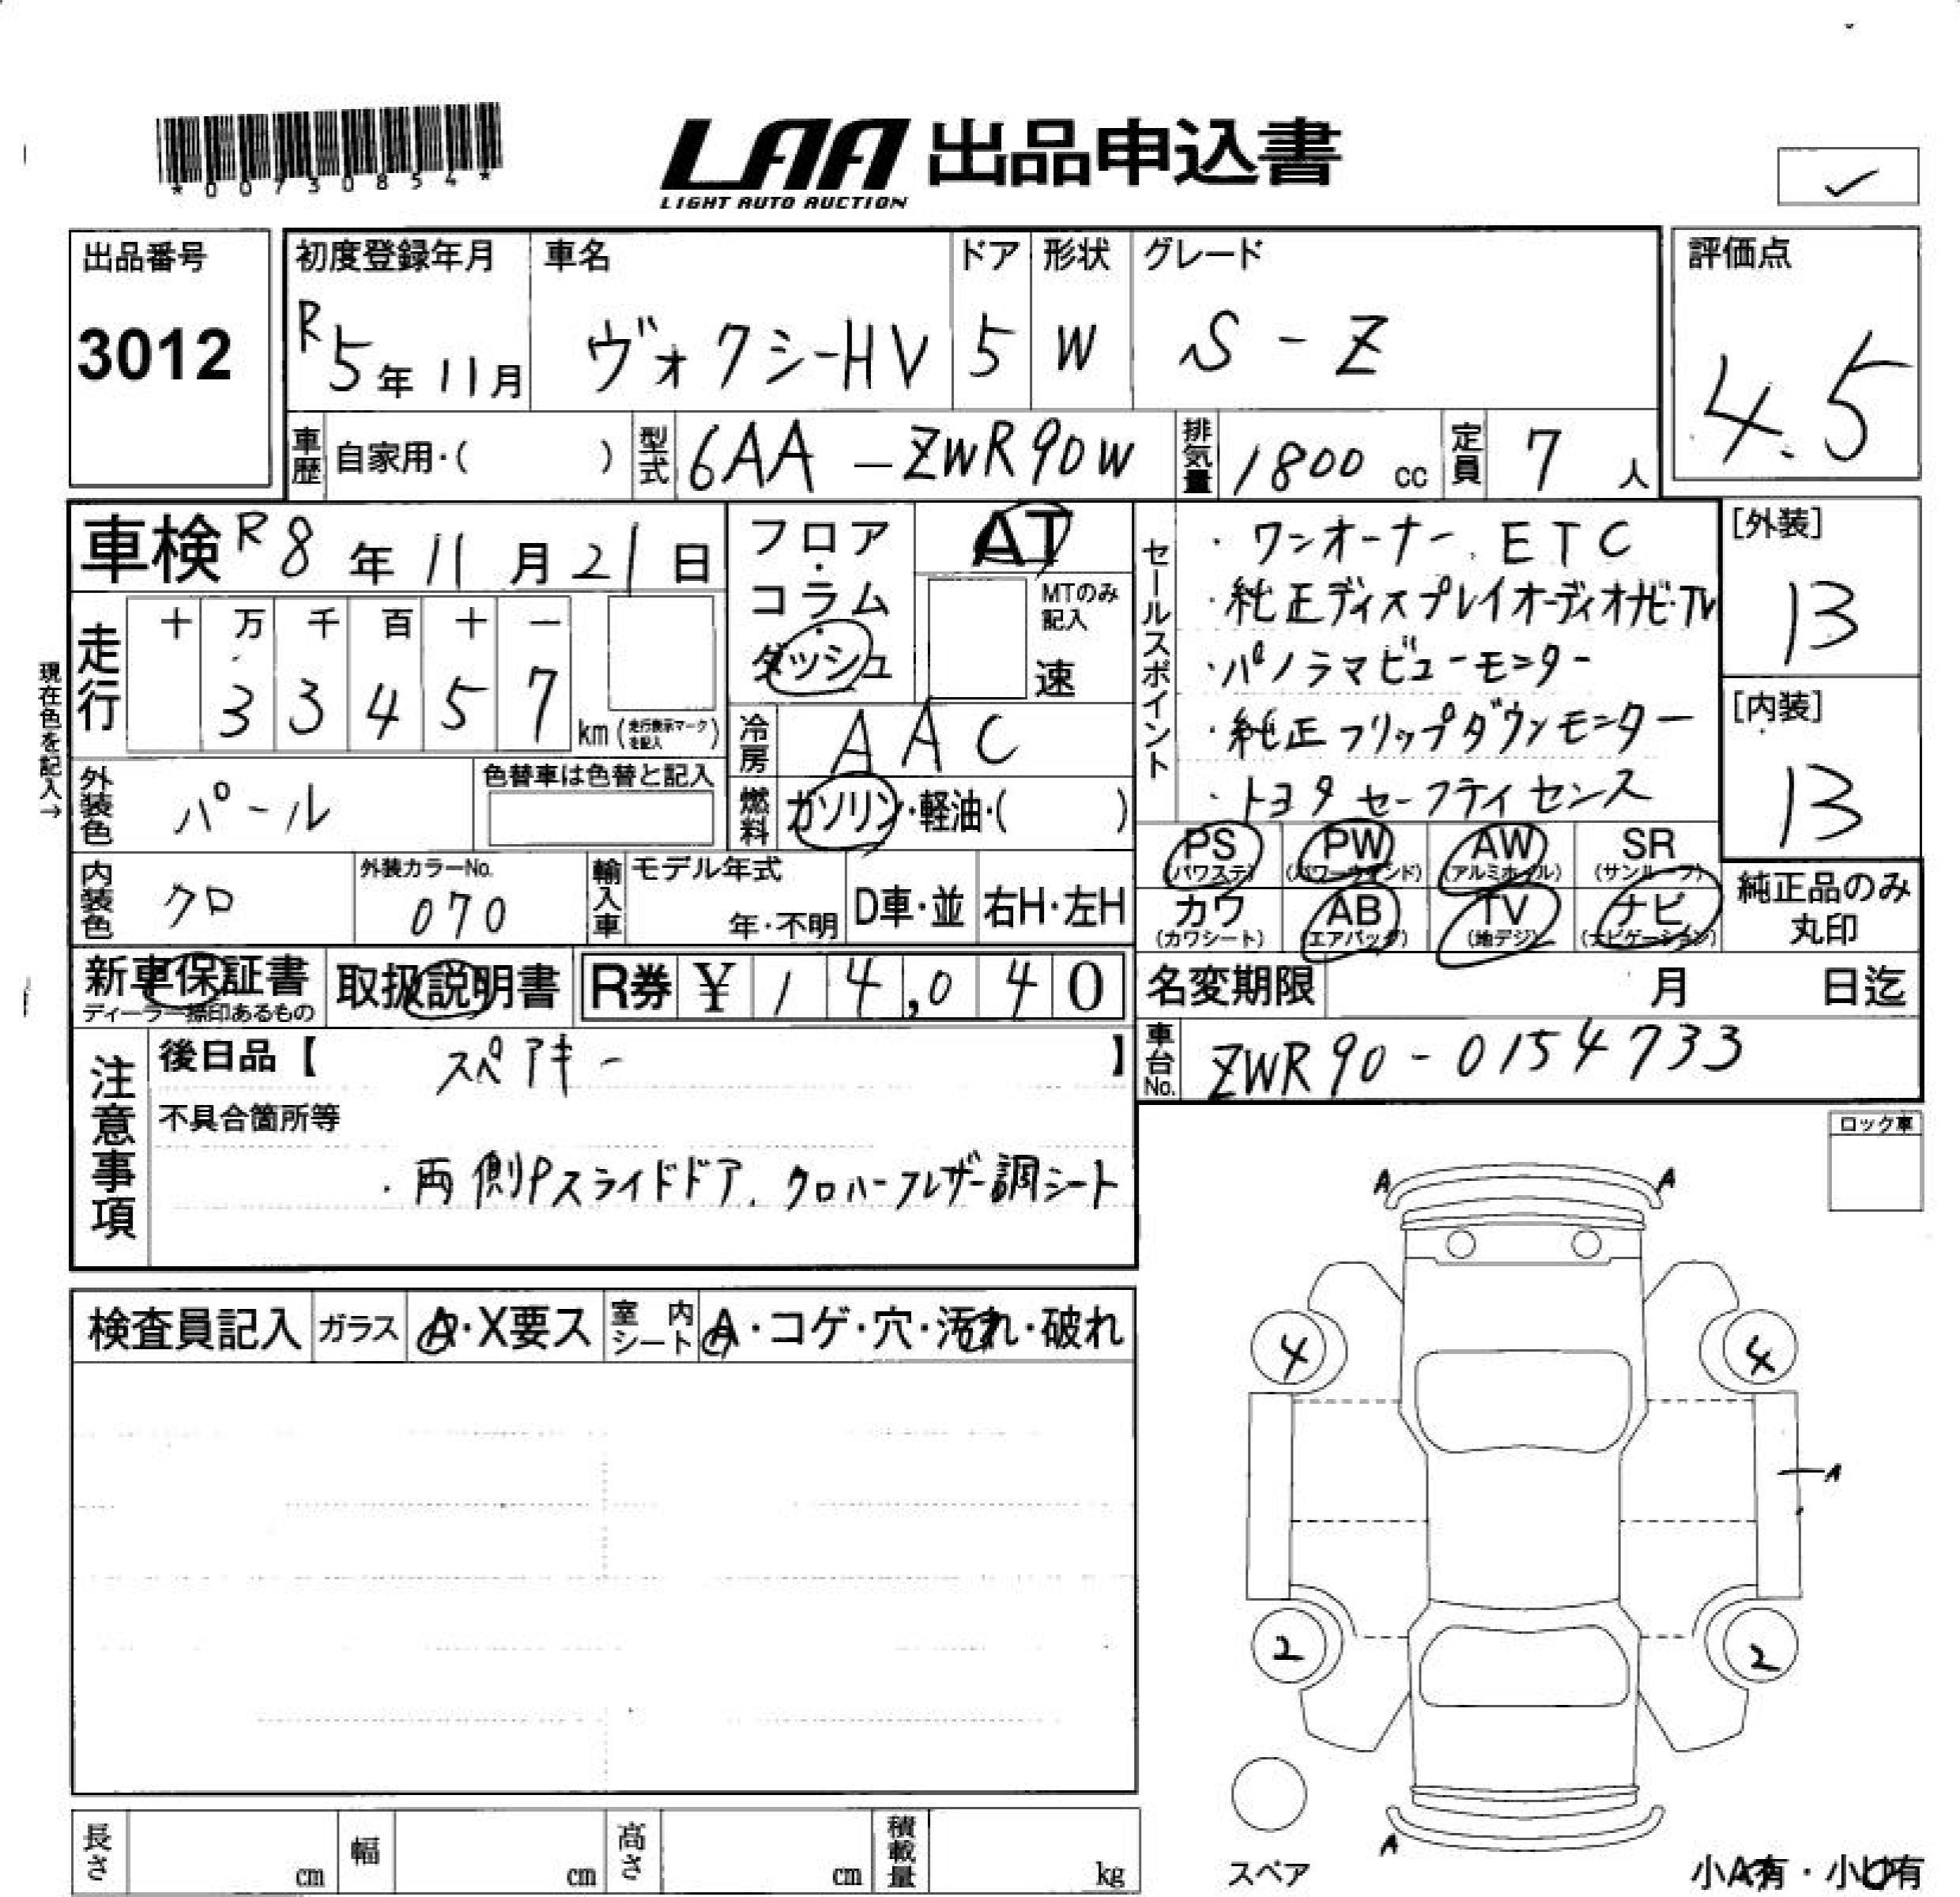 *00730854*
LAA 出品申込書
LIGHT AUTO AUCTION
✓
出品番号
3012
初度登録年月
R5年11月
車名
ヴォクシーHV
ドア
5
形状
W
グレード
S-Z
評価点
4.5
車歴 自家用・( )
型式 6AA-ZWR90W
排気量 1800 cc
定員 7 人
車検 R8年11月21日
現在色を記入→
走行
十 万 千 百 十 一
3 3 4 5 7
km (走行表示マークを記入)
フロア・コラム・ダッシュ
AT
MTのみ記入
速
冷房 AAC
燃料 ガソリン・軽油・( )
セールスポイント
・ワンオーナー、ETC
・純正ディスプレイオーディオナビ・TV
・パノラマビューモニター
・純正フリップダウンモニター
・トヨタセーフティセンス
[外装]
13
[内装]
13
外装色 パール
色替車は色替と記入
内装色 クロ
外装カラーNo.
070
輸入車 モデル年式
年・不明
D車・並
右H・左H
PS (パワステ)
PW (パワーウインド)
AW (アルミホイル)
SR (サンルーフ)
カワ (カワシート)
AB (エアバッグ)
TV (地デジ)
ナビ (ナビゲーション)
純正品のみ
丸印
新車保証書
ディーラー捺印あるもの
取扱説明書
R券 ¥14,040
名変期限 月 日迄
車台No. ZWR90-0154733
注意事項
後日品【 スペアキー 】
不具合箇所等
・両側Pスライドドア、クロハーフレザー調シート
ロック車
検査員記入
ガラス A・X要ス
室内シート A・コゲ・穴・汚れ・破れ
A A
4 4
A
2 2
A
スペア
小A有・小U有
長さ cm
幅 cm
高さ cm
積載量 kg